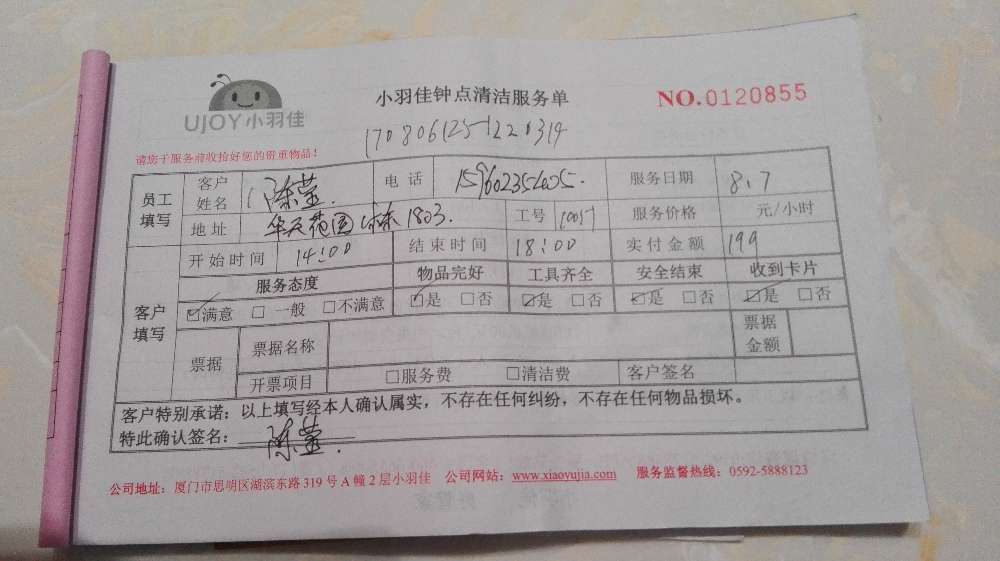 UJOY小羽佳
小羽佳钟点清洁服务单
NO.0120855
1708061251220314
请您于服务前收拾好您的贵重物品!
员工填写 客户姓名 陈莹 电话 服务日期 8.7
地址 1803. 工号 10057 服务价格 元/小时
客户填写 开始时间 14:00 结束时间 18:00 实付金额 199
服务态度 物品完好 工具齐全 安全结束 收到卡片
☑满意 □ 一般 □不满意 ☑是 □否 ☑是 □否 ☑是 □否 ☑是 □否
票据 票据名称 票据金额
开票项目 □服务费 □清洁费 客户签名
客户特别承诺：以上填写经本人确认属实，不存在任何纠纷，不存在任何物品损坏。
特此确认签名：陈莹.
公司地址：厦门市思明区湖滨东路319号A幢2层小羽佳 公司网站：www.xiaoyujia.com 服务监督热线：0592-5888123